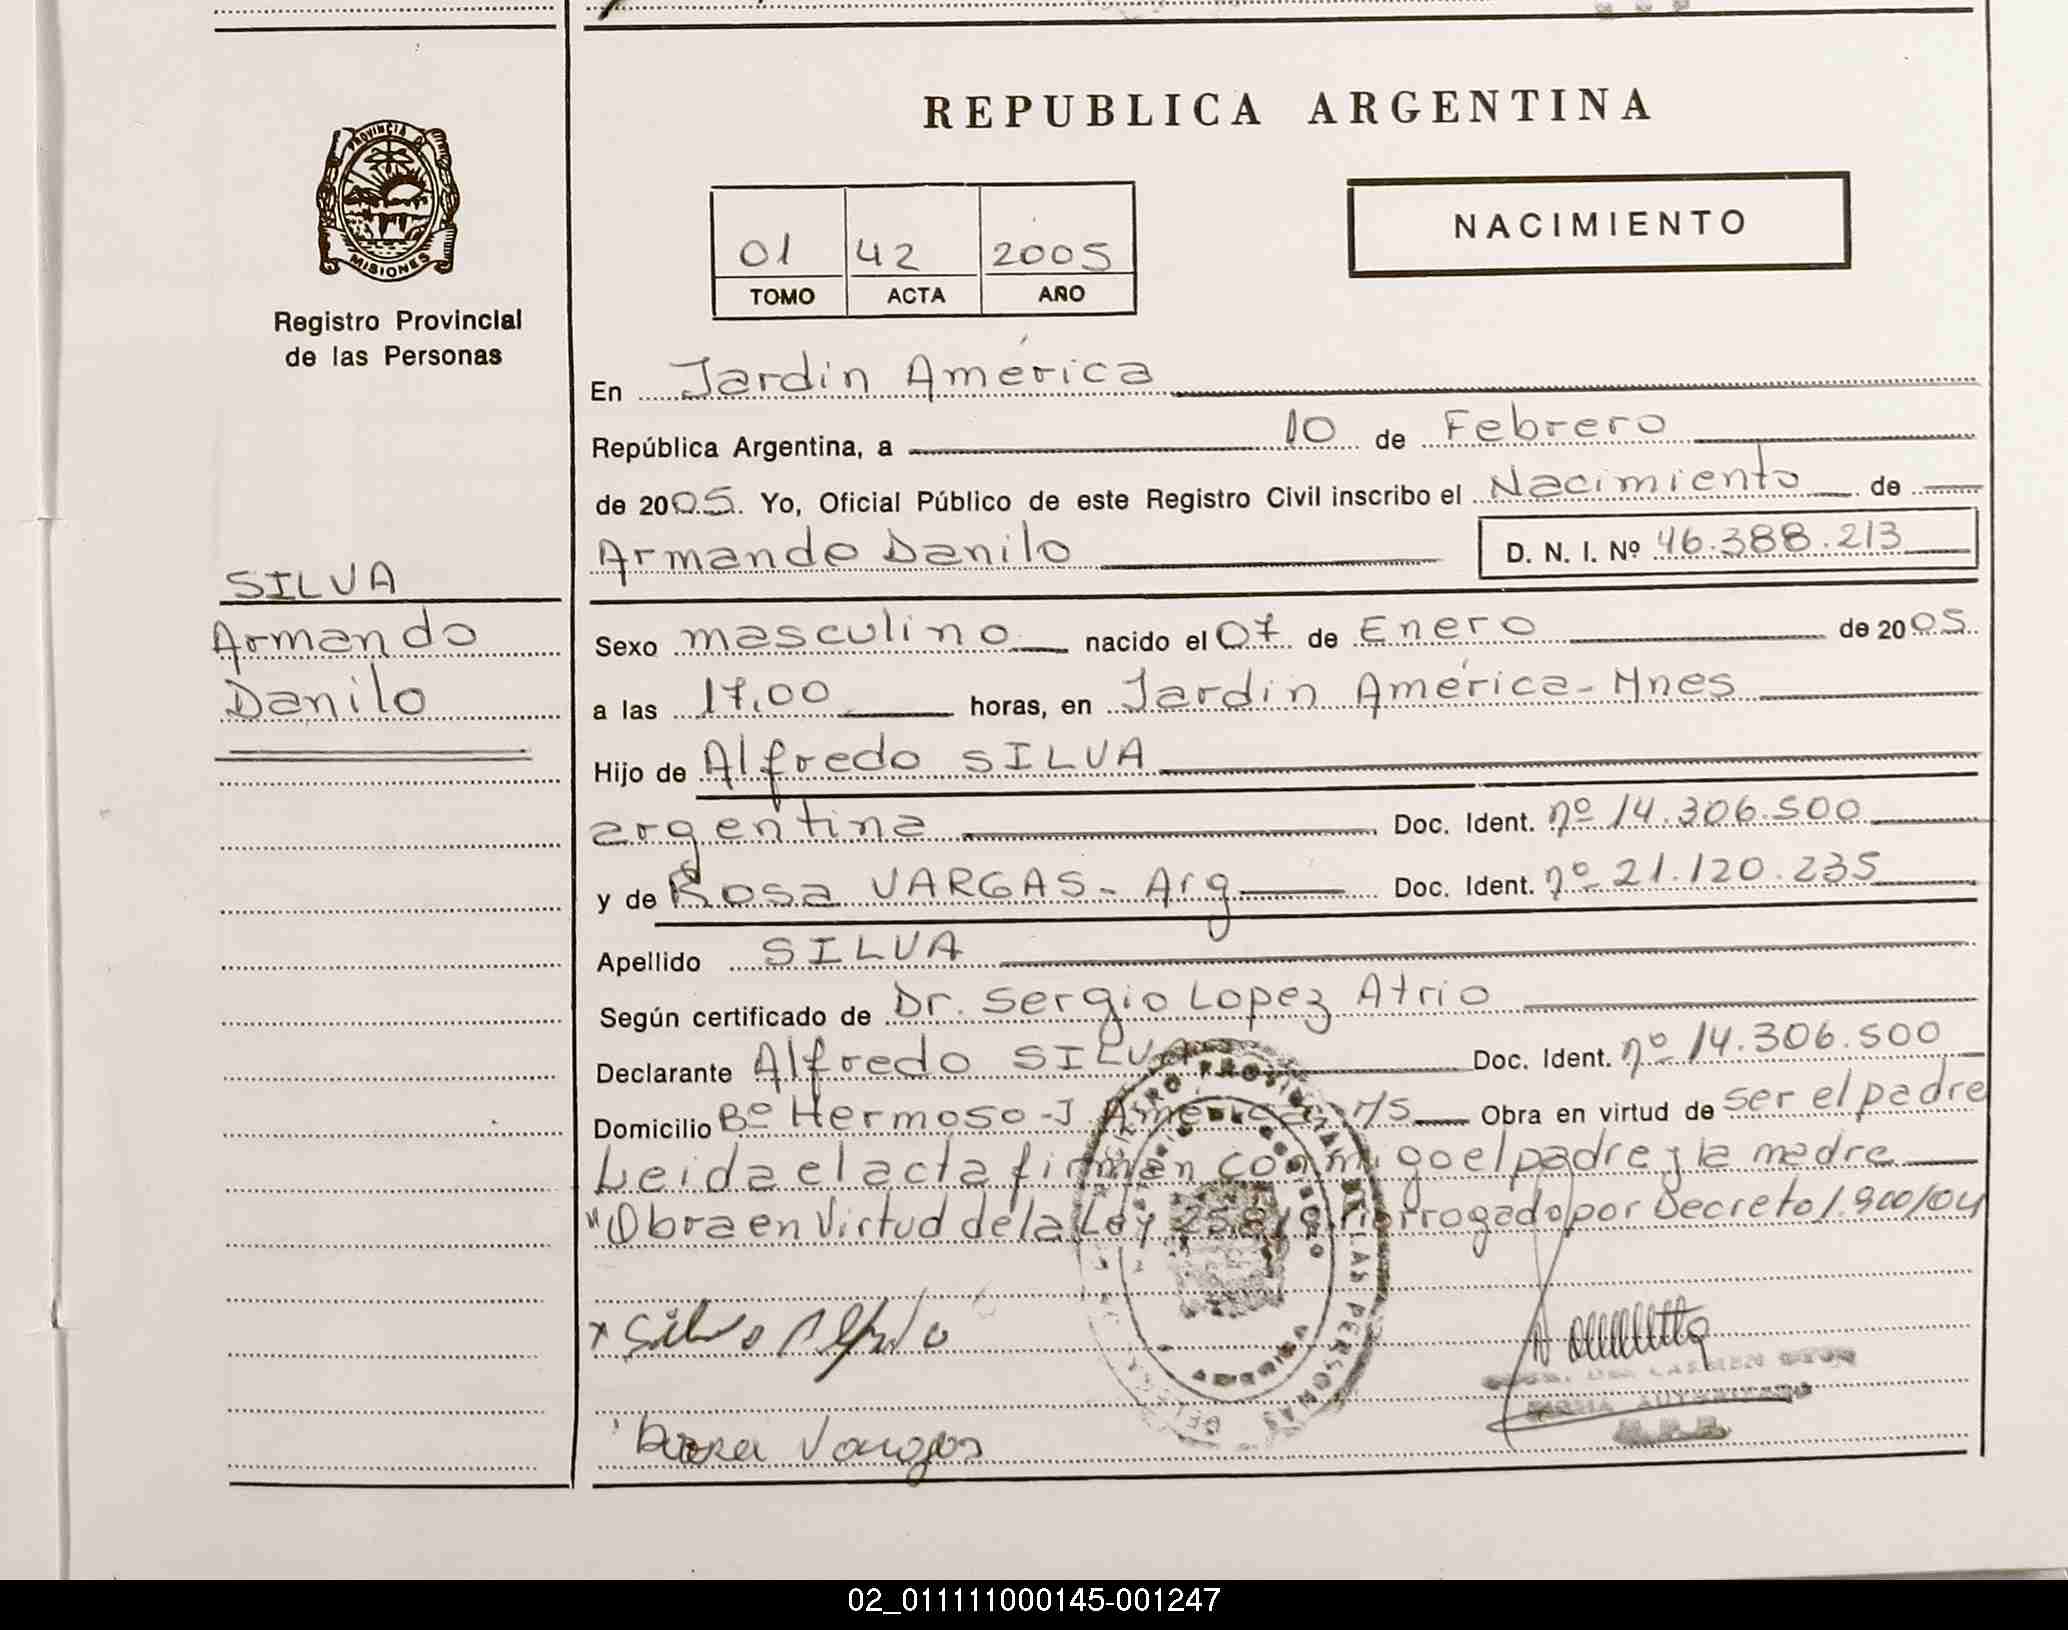 REPUBLICA ARGENTINA
PROVINCIA DE
MISIONES
Registro Provincial
de las Personas
01 42 2005
TOMO ACTA AÑO
NACIMIENTO
En Jardin América
República Argentina, a 10 de Febrero
de 2005. Yo, Oficial Público de este Registro Civil inscribo el Nacimiento de
Armando Danilo D. N. I. Nº 46.388.213
SILVA
Armando
Danilo
Sexo masculino nacido el 07 de Enero de 2005
a las 17,00 horas, en Jardin América - Mnes
Hijo de Alfredo SILVA
argentina Doc. Ident. nº 14.306.500
y de Rosa VARGAS - Arg Doc. Ident. nº 21.120.235
Apellido SILVA
Según certificado de Dr. Sergio Lopez Atrio
Declarante Alfredo SILVA Doc. Ident. nº 14.306.500
Domicilio Bº Hermoso - J. América Obra en virtud de ser el padre
Leida el acta firman conmigo el padre y la madre
"Obra en Virtud de la Ley por Decreto 1.900/04
Silva Alfredo
Vargas
REGISTRO PROVINCIAL DE LAS PERSONAS
FIRMA AUTORIZADA
02_011111000145-001247